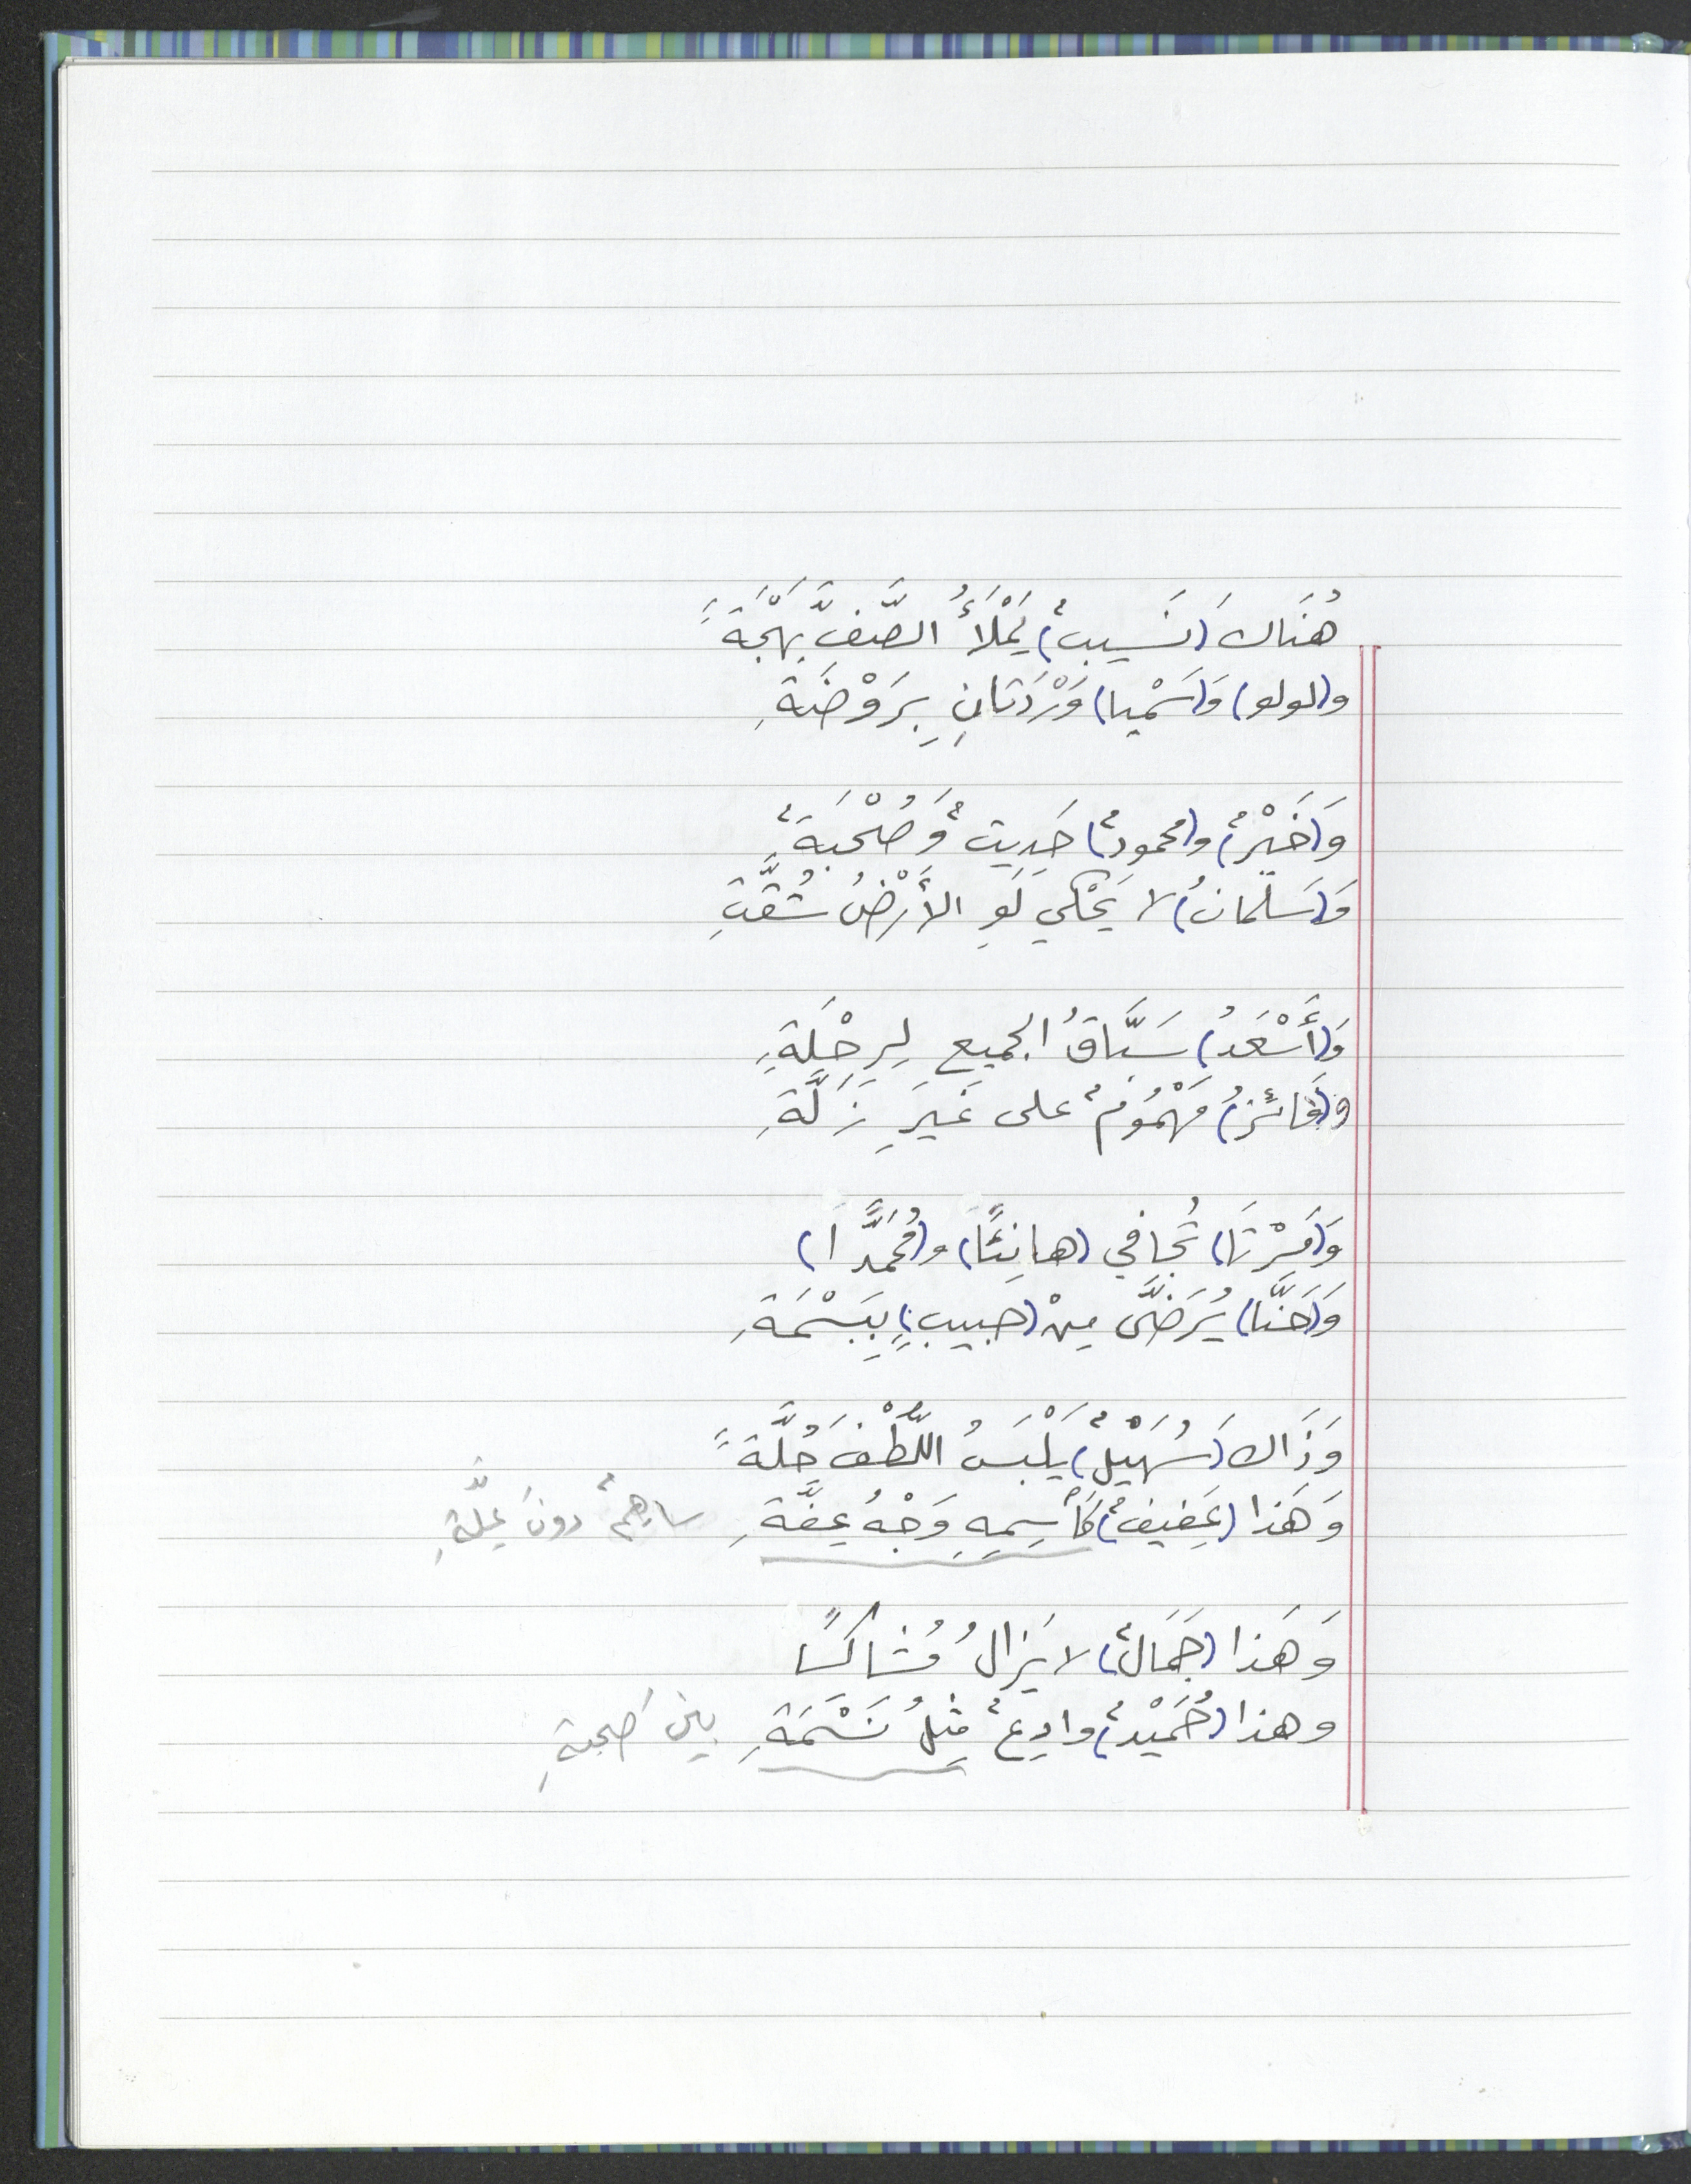 هُنَاكَ (نَسِيبٌ) يَمْلَأُ الصَّفَّ بَهْجَةً
و(لولو) وَ(سَمْيا) وَرْدَتانِ بِرَوْضَةِ
وَ(خَيْرٌ) و(محمودٌ) حَدِيثٌ وَصُحْبَةٌ
وَ(سَلمانُ) لا يَحْكي لَوِ الأَرْضُ شُقَّتِ
وَ(أَسْعَدُ) سَبَّاقُ الجميعِ لِرِحْلَةٍ
و(فَائِزُ) مَهْمُومٌ على غَيرِ زَلَّةِ
وَ(مِرْتَا) تُجافي (هانِئًا) و(مُحمَّدًا)
وَ(حَنَّا) يُرَضَّى مِنْ (حبيبٍ) بِبَسْمَةِ
وَذَاكَ (سُهَيْلٌ) يَلْبَسُ اللُّطْفَ حُلَّةً
وَهَذا (عَفيفٌ) كَأسمِهِ وَجْهُ عِفَّةِ ساهمٌ دونَ عِلَّةِ
وَهَذا (جَمَالٌ) لا يَزالُ مُشاكسًا
وهذا (حُمَيْدٌ) وادِعٌ مِثلُ نَسْمَةِ بينَ صحبةِ